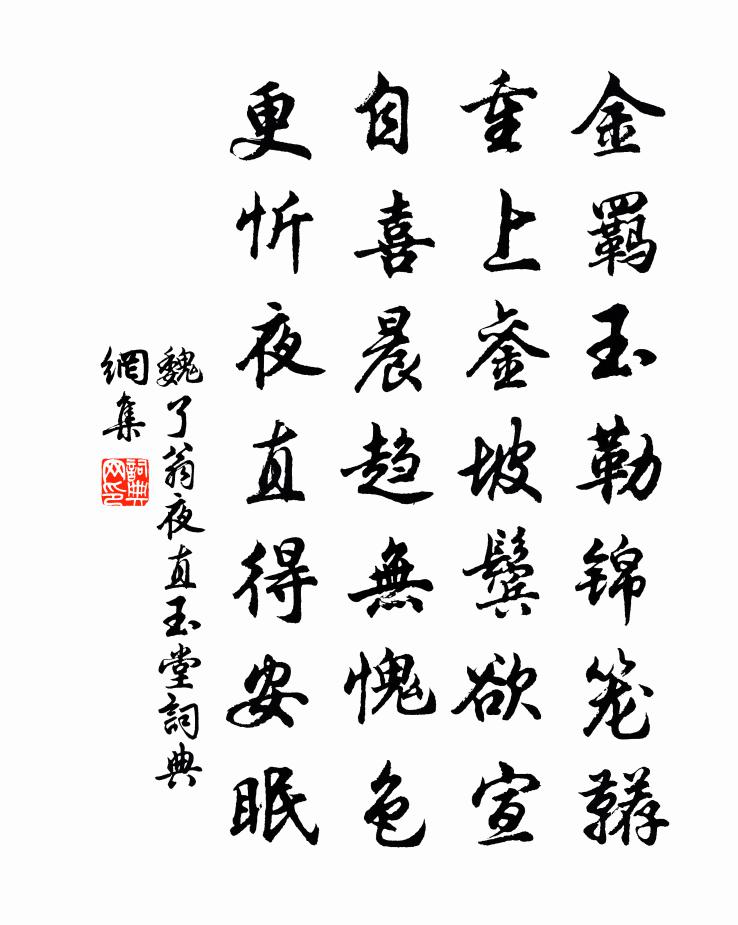 金羈玉勒锦笼鞯
重上銮坡鬓欲宣
自喜晨趋無愧色
更忻夜直得安眠
魏了翁夜直玉堂詞典
網集
詞典
网印